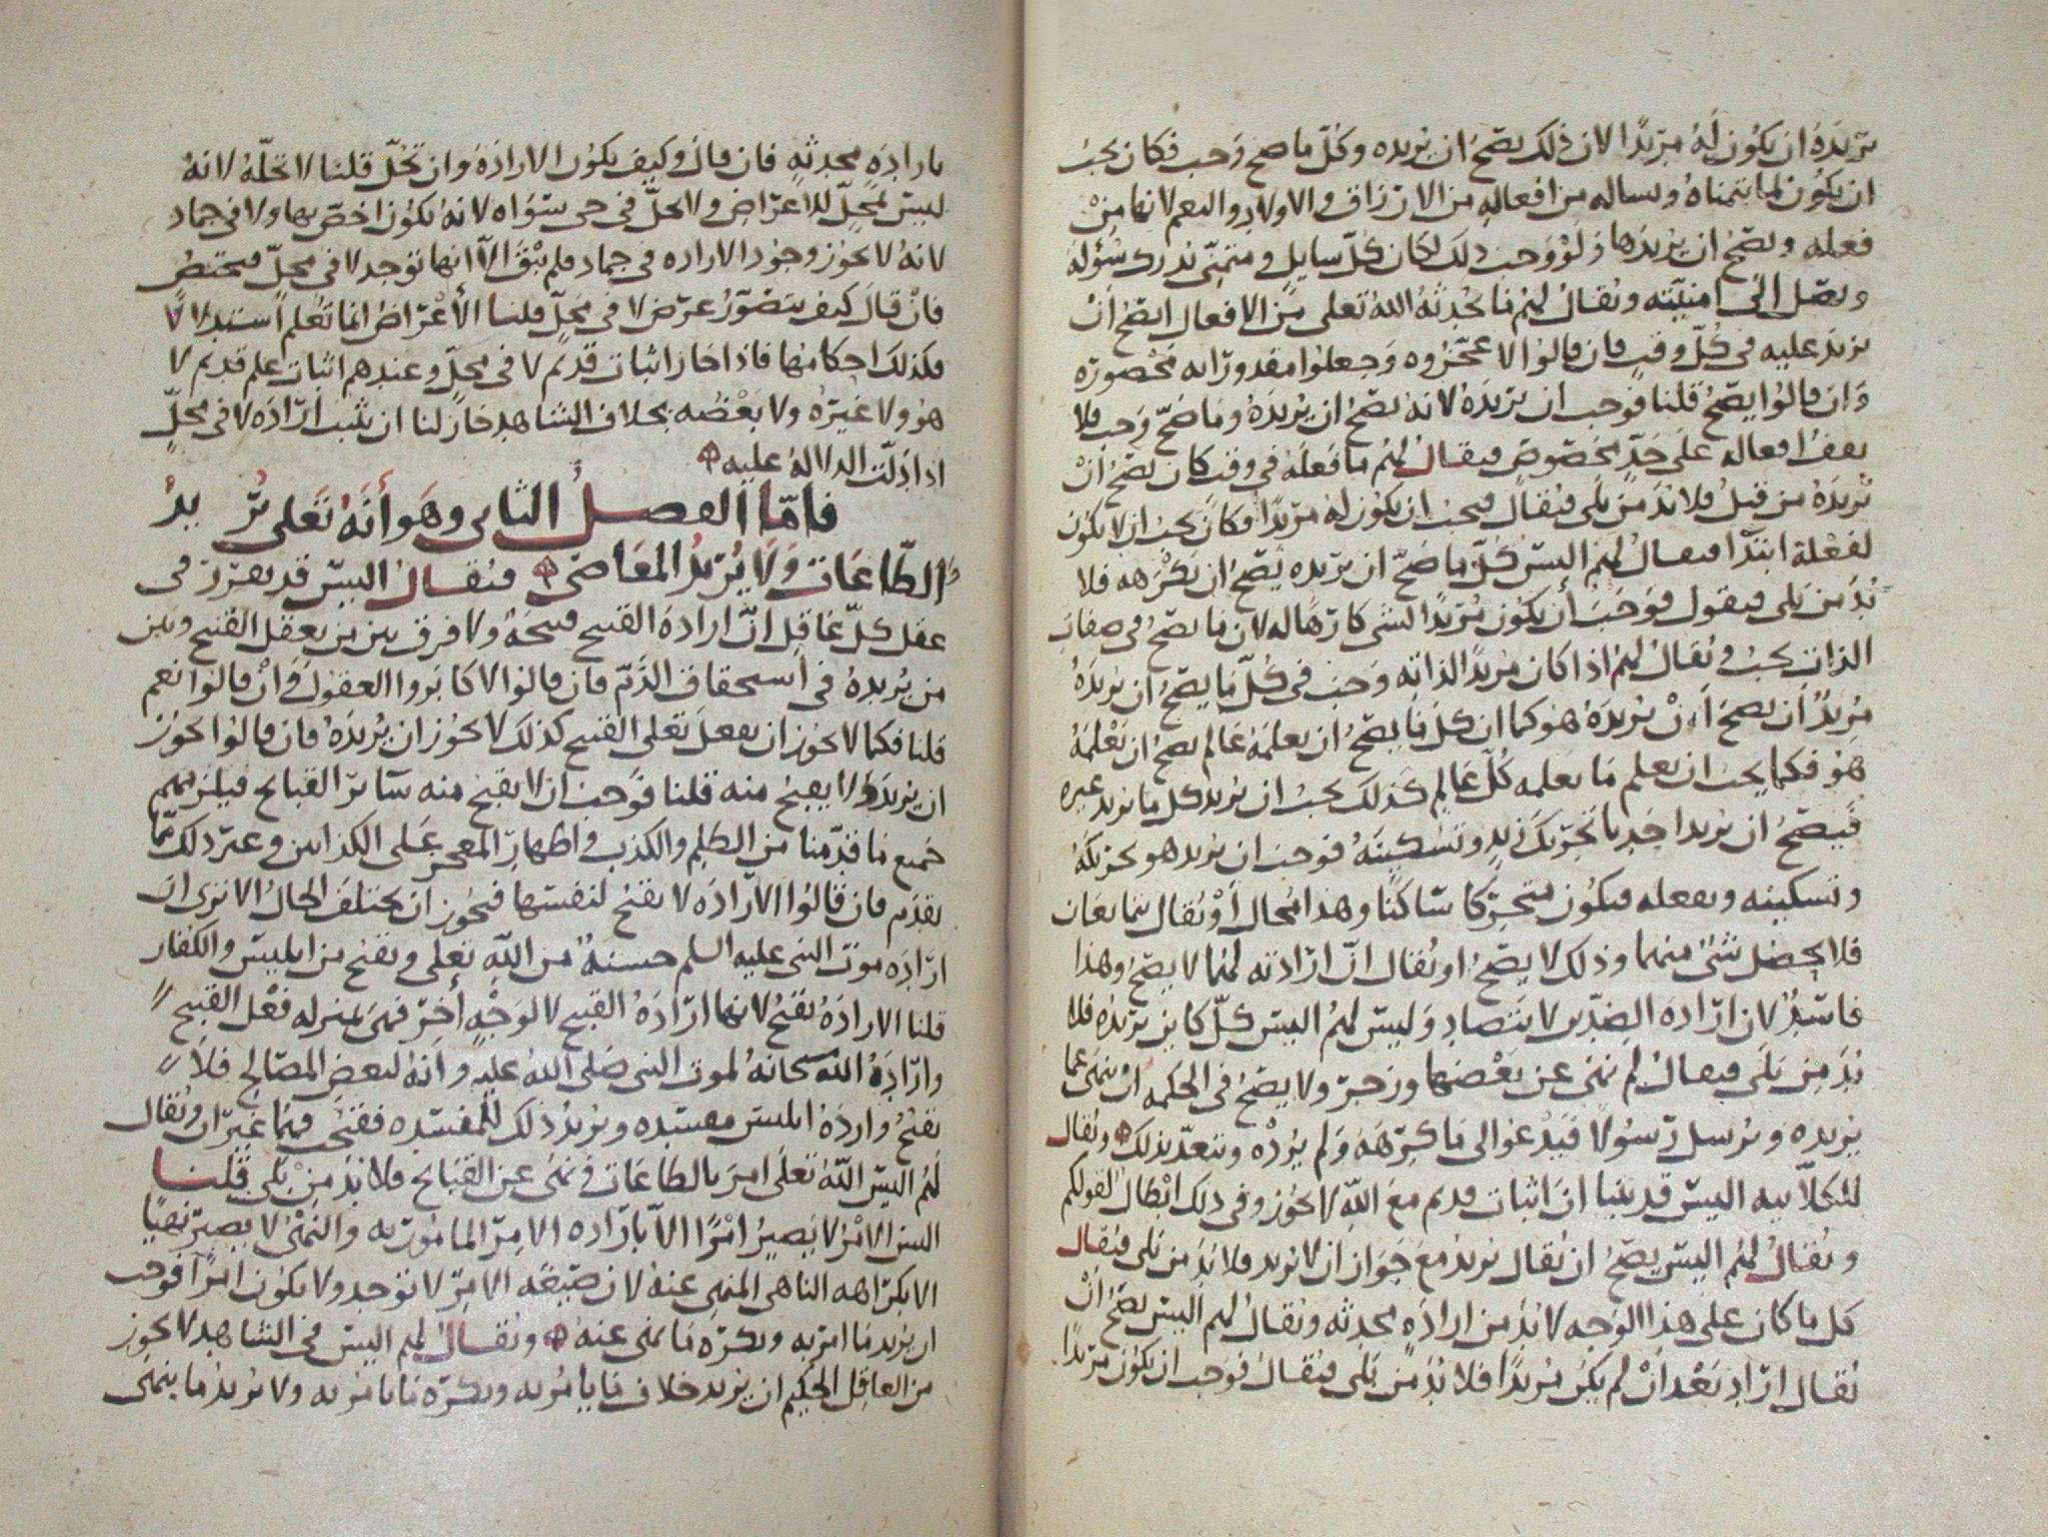 يريده ان يكون له مريدًا لان ذلك يصح ان يريده وكل ما صح وجب فكان يجب
ان يكون لما يتمناه ويساله من افعاله من الارزاق والاولاد والنعم لانها من
فعله ويصح ان يريدها ولو وجب ذلك لكان كل سايل ومتمني يدرك سؤله
ويصل الى امنيته ويقال لهم ما يحدثه الله تعلى من الافعال ايصح ان
يزيد عليه في كل وقت فان قالوا لا عجزوه وجعلوا مقدوراته محصورة
وان قالوا يصح قلنا فوجب ان يريده لانه يصح ان يريده وما صح وجب فلا
يقف افعاله على حد مخصوص فيقال لهم ما فعله في وقت كان يصح ان
يريده من قبل فلا بد من بلى فيقال فيجب ان يكون له مريدًا فكان يجب ان لا يكون
لفعله ابتدا فيقال لهم اليس كل ما صح ان يريده يصح ان يكرهه فلا
بد من بلى فيقول فوجب أن يكون مريدًا لشى كارهًا له لان ما يصح في صفات
الذات يجب ويقال لهم اذا كان مريدًا لذاته وجب في كل ما يصح ان يريده
مريدٌ ان يصح أن يريده هو كما ان كل ما يصح ان يعلمه عالم يصح ان يعلمه
هو فكما يجب ان يعلم ما يعلمه كل عالم كذلك يجب ان يريد كل ما يريد غيره
فيصح ان يريد احدنا تحريك زيد وتسكينه فوجب ان يريد هو تحريكه
وتسكينه ويفعله فيكون متحركا ساكنًا وهذا محال أو يقال يتمانعان
فلا يحصل شئ منهما وذلك لا يصح او يقال انّ ارادته لهما لا يصح وهذا
فاسدٌ لان ارادة الضدين لا يتضاد وليس لهم اليس كل كاين يريده فلا
بد من بلى فيقال لم نهى عن بعضها وزجر ولا يصح في الحكمه ان ينهى عما
يريده ويرسل رسولا فيدعوا الى ما كرهه ولم يرده وتتعدّ بذلك ويقال
للكلابيه اليس قد بينا ان اثبات قديم مع الله لا يجوز وفي ذلك ابطال لقولكم
ويقال لهم اليس يصح ان يقال يريد مع جواز ان لا يريد فلا بد من بلى فيقال
كل ما كان على هذا الوجه لا بد من ارادهٍ محدثه ويقال لهم اليس يصح ان
يقال اراد بعد أن لم يكن مريدًا فلا بد من بلى فيقال فوجب ان يكون مريدا
بارادةٍ محدثهٍ فان قال وكيف يكون الارادة وان تحل قلنا لا تحلّه لانه
ليس بمحلّ للاعراض ولا تحل في حي سواه لانه يكون اخص بها ولا في جماد
لانه لا يجوز وجود الاراده في جماد فلم يبق الا انها توجد لا في محلّ مختص
فان قال كيف يتصور عرض لا في محلّ قلنا الأعراض انما تعلم استدلالًا
فكذلك احكامها فاذا جاز اثبات قديم لا في محلّ وعندهم اثبات علم قديم لا
هو ولا غيره ولا بعضه بخلاف الشاهد جاز لنا ان نثبت ارادة لا في محلّ
اذا دلت الدلاله عليه
فامّا الفصل الثاني وهو أنّه تعلى يُريدُ
الطّاعات ولا يُريد المعاصى فيقال اليس قد تقرر في
عقل كلّ عاقل انّ ارادة القبيح قبيحة ولا فرق بين من يفعل القبيح وبين
من يريده في استحقاق الذم فان قالوا لا كابروا العقول وان قالوا نعم
قلنا فكما لا يجوز ان يفعل تعلى القبيح كذلك لا يجوز ان يريده فان قالوا يجوز
ان يريد ولا يقبح منه قلنا فوجب ان لا يقبح منه سائر القبايح فيلزمهم
جميع ما قدمنا من الظلم والكذب واظهار المعجز على الكذابين وغير ذلك مما
تقدم فان قالوا الارادة لا تقبح لنفسها فيجوز ان يختلف الحال الا ترى ان
ارادة موت النبى عليه السلم حسنة من الله تعلى وتقبح من ابليس والكفار
قلنا الارادة تقبح لانها ارادة القبيح لا لوجه أخر فهى بمنزله فعل القبيح
وارادة الله سبحانه لموت النبى صلى الله عليه وأنه لبعض المصالح فلا
تقبح وارادة ابليس مفسده ويريد ذلك للمفسده فقبحت فهما غيران ويقال
لهم اليس الله تعلى امر بالطاعات ونهى عن القبايح فلا بد من بلى قلنا
اليس الامر لا يصير امرًا الا بارادة الامر المامور به والنهى لا يصير نهيًا
الا بكراهه الناهى المنهى عنه لان صيغه الامر لا توجد ولا يكون امرًا فوجب
ان يريد ما امر به ويكره ما نهى عنه ويقال لهم اليس في الشاهد لا يجوز
من العاقل الحكيم ان يريد خلاف ما يأمر به ويكره ما يامر به ولا يريد ما ينهى